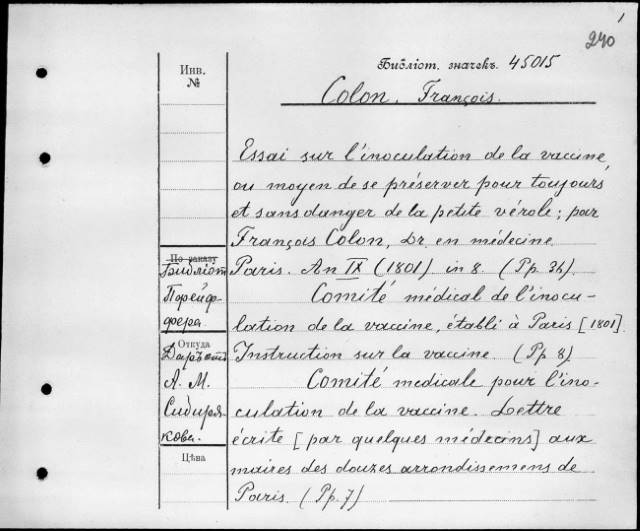 240
Инв.
№
Библіот. значекъ. 45015
Colon, François.
Essai sur l'inoculation de la vaccine,
ou moyen de se préserver pour toujours
et sans danger de la petite vérole; par
François Colon, Dr. en médecine
Paris. An IX (1801) in 8. (Pp. 34)
Comité médical de l'inocu-
lation de la vaccine, établi à Paris [1801].
Instruction sur la vaccine. (Pp. 8)
Comité medicale pour l'ino-
culation de la vaccine. Lettre
écrite [par quelques médecins] aux
maires des douzes arrondissemens de
Paris. (Pp. 7)
По заказу
Библіот.
Порейф-
фера
Откуда
Даръ отъ
А. М.
Сибиря-
кова.
Цѣна